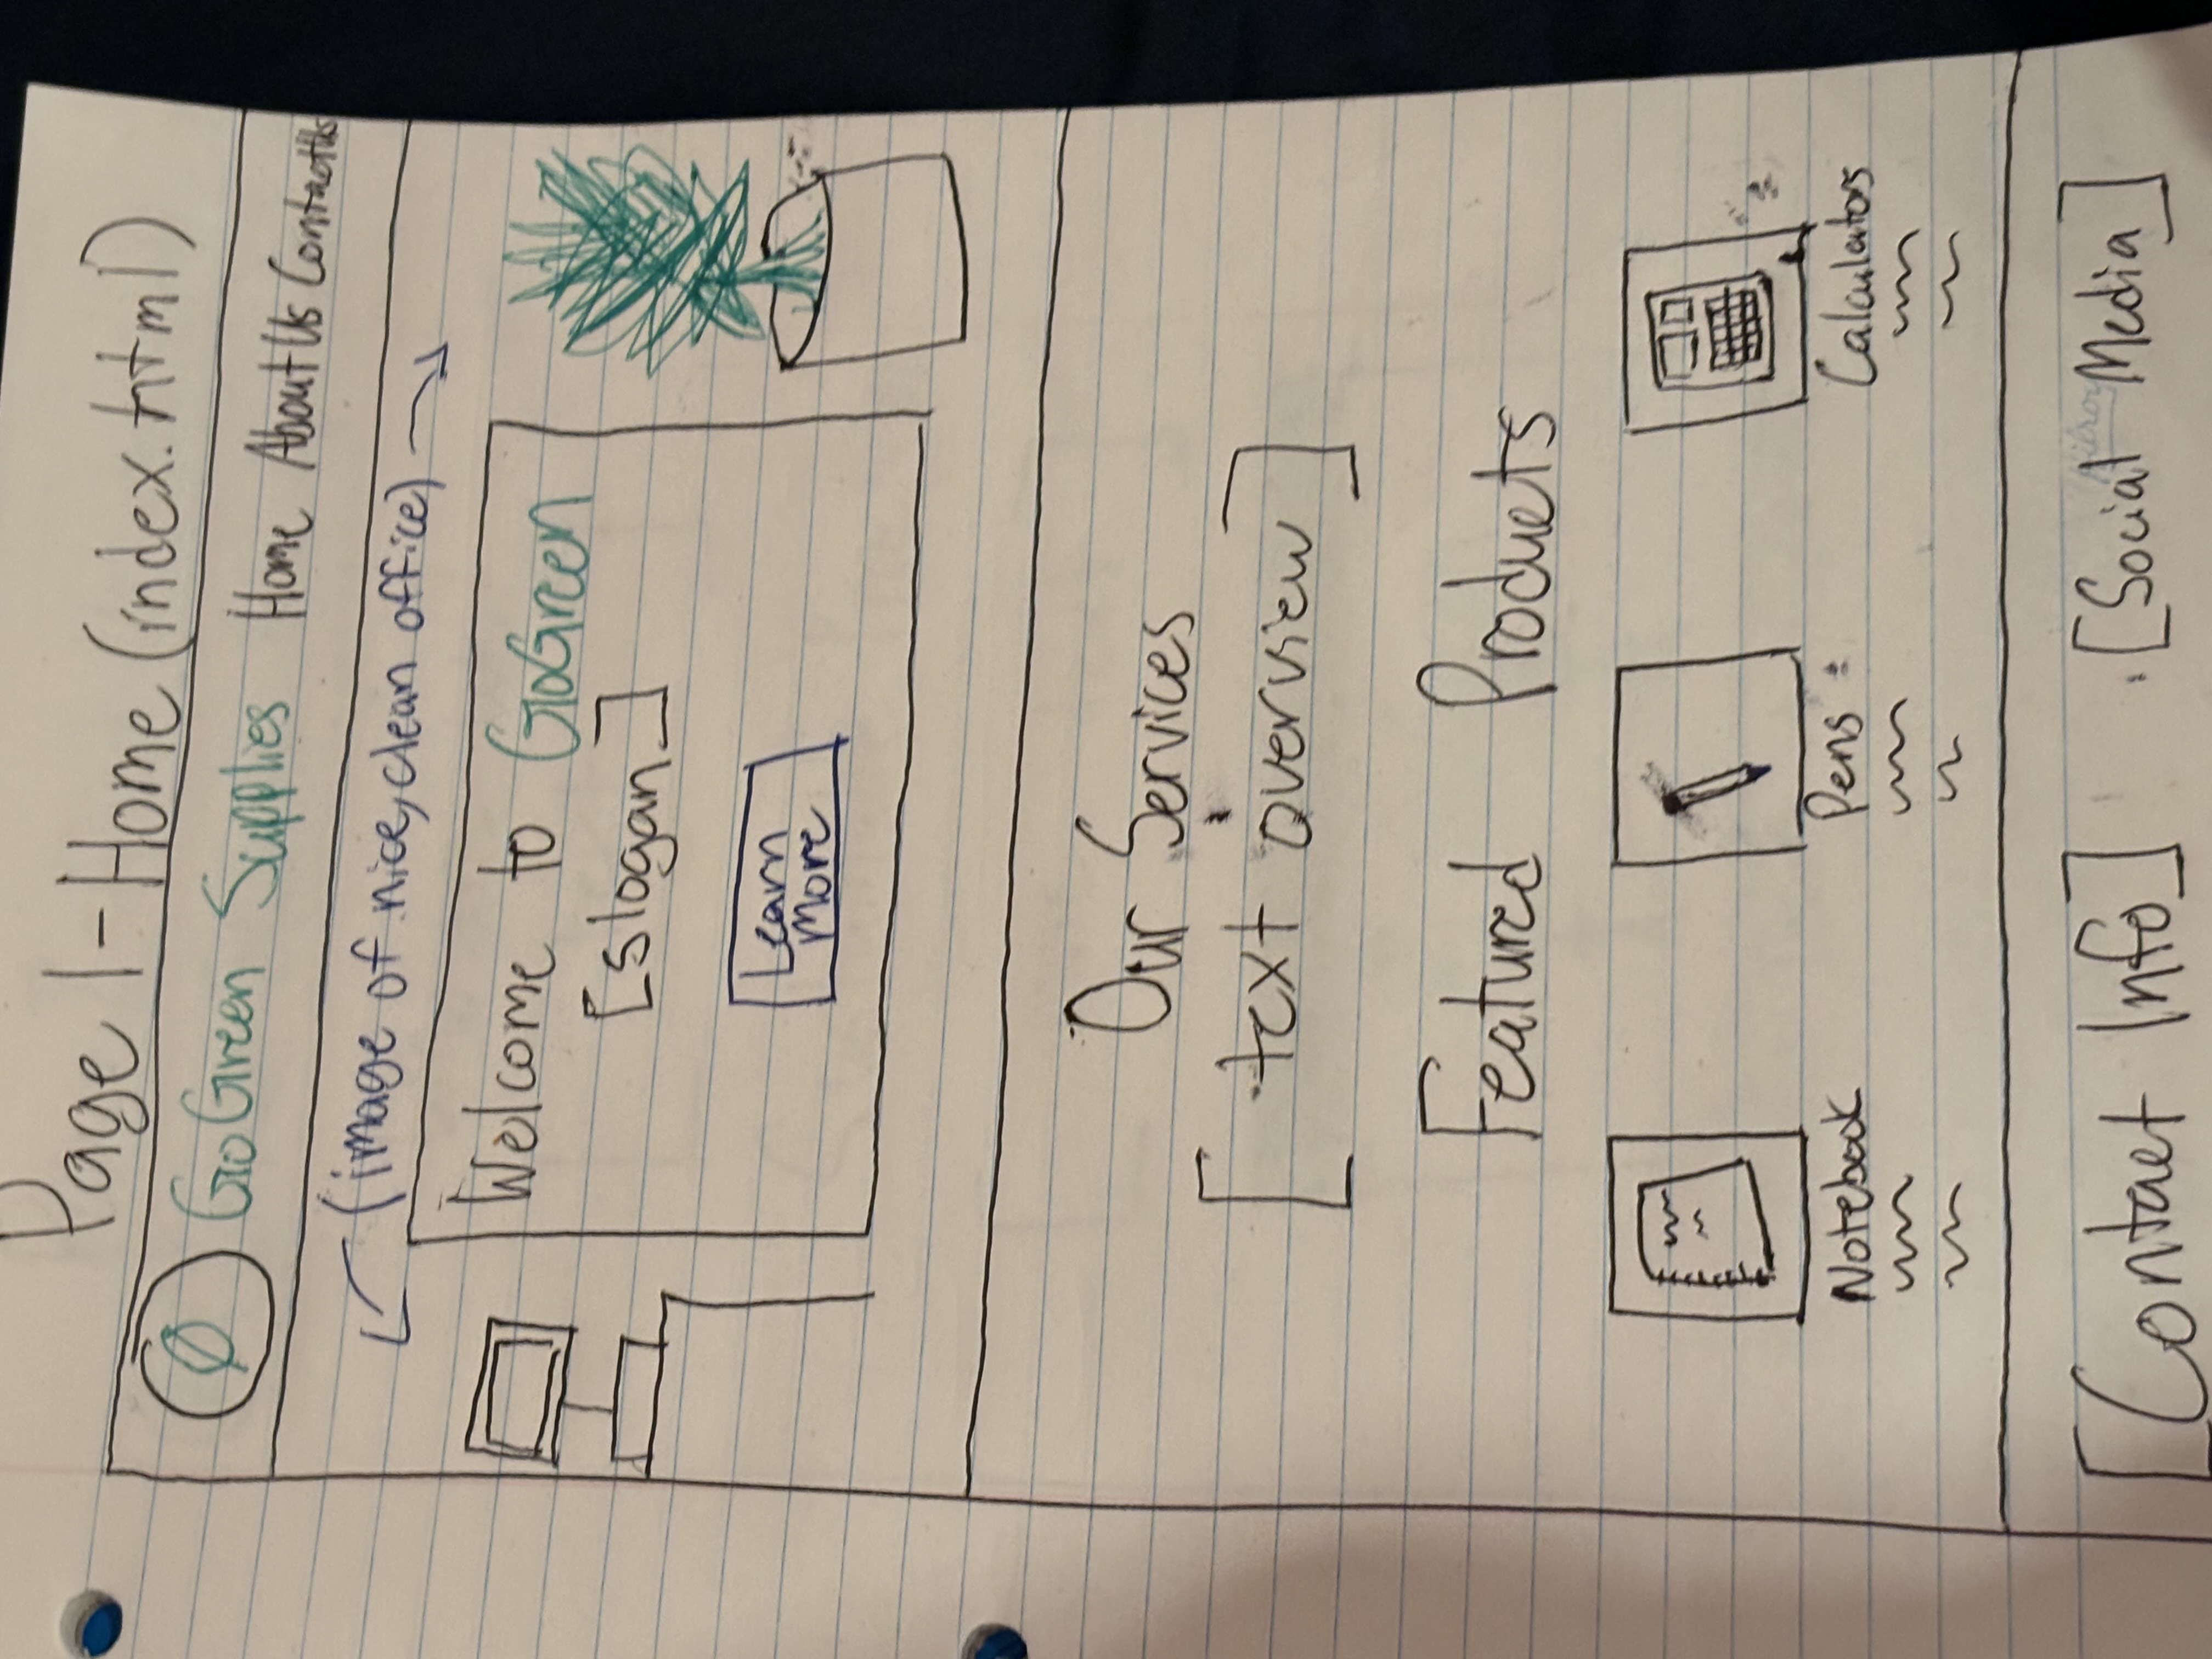 Page 1-Home (index.html)
GoGreen Supplies Home About Us Contact Us
(image of nice, clean office)
Welcome to GoGreen
[slogan]
Learn
More
Our Services
[text overview]
Featured Products
Notebook Pens Calculators
[Contact Info] [Social Media]